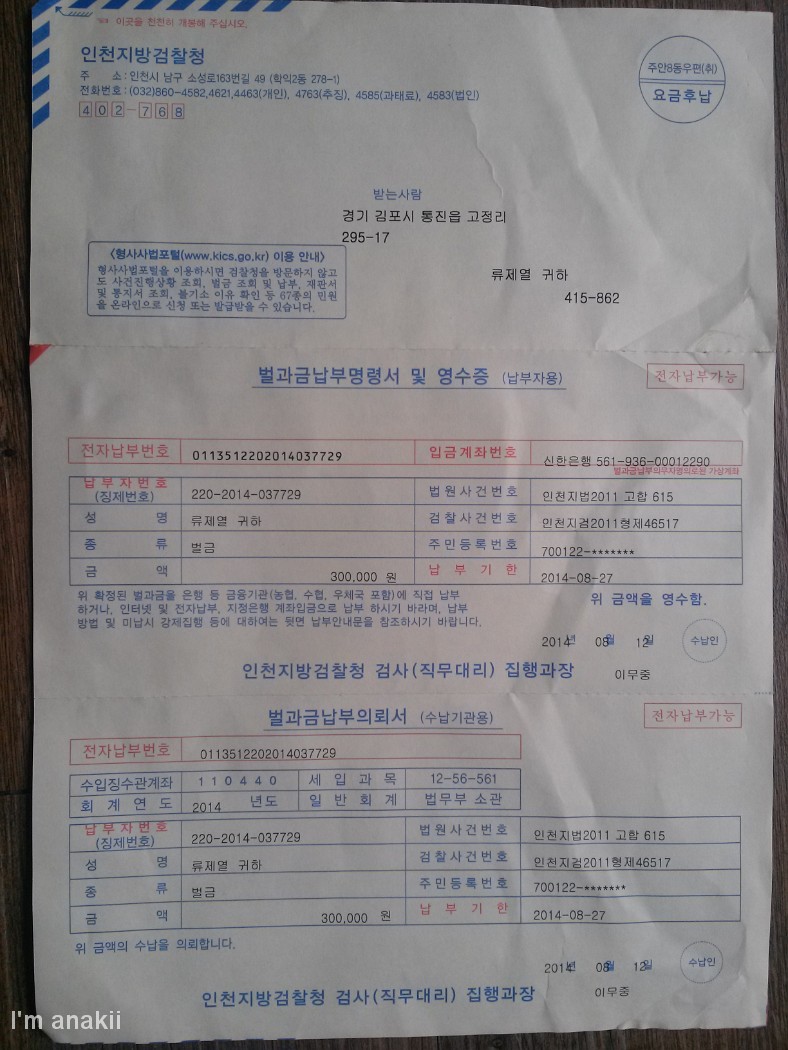 ☜ 이곳을 천천히 개봉해 주십시오.
인천지방검찰청
주 소:인천시 남구 소성로163번길 49 (학익2동 278-1)
전화번호:(032)860-4582,4621,4463(개인), 4763(추징), 4585(과태료), 4583(법인)
402-768
주안8동우편(취)
요금후납
받는사람
경기 김포시 통진읍 고정리
295-17
류제열 귀하
415-862
<형사사법포털(www.kics.go.kr) 이용 안내>
형사사법포털을 이용하시면 검찰청을 방문하지 않고
도 사건진행상황 조회, 벌금 조회 및 납부, 재판서
및 통지서 조회, 불기소 이유 확인 등 67종의 민원
을 온라인으로 신청 또는 발급받을 수 있습니다.
벌과금납부명령서 및 영수증 (납부자용)
전자납부가능
전자납부번호 0113512202014037729 입금계좌번호 신한은행 561-936-00012290
벌과금납부의무자명의로된 가상계좌
납부자번호 (징제번호) 220-2014-037729 법원사건번호 인천지법2011 고합 615
성 명 류제열 귀하 검찰사건번호 인천지검2011형제46517
종 류 벌금 주민등록번호 700122-*******
금 액 300,000 원 납부기한 2014-08-27
위 확정된 벌과금을 은행 등 금융기관(농협, 수협, 우체국 포함)에 직접 납부
하거나, 인터넷 및 전자납부, 지정은행 계좌입금으로 납부 하시기 바라며, 납부
방법 및 미납시 강제집행 등에 대하여는 뒷면 납부안내문을 참조하시기 바랍니다.
위 금액을 영수함.
2014년 08월 12일
수납인
인천지방검찰청 검사(직무대리) 집행과장 이무중
벌과금납부의뢰서 (수납기관용)
전자납부가능
전자납부번호 0113512202014037729
수입징수관계좌 110440 세입과목 12-56-561
회계연도 2014 년도 일반회계 법무부 소관
납부자번호 (징제번호) 220-2014-037729 법원사건번호 인천지법2011 고합 615
성 명 류제열 귀하 검찰사건번호 인천지검2011형제46517
종 류 벌금 주민등록번호 700122-*******
금 액 300,000 원 납부기한 2014-08-27
위 금액의 수납을 의뢰합니다.
2014년 08월 12일
수납인
인천지방검찰청 검사(직무대리) 집행과장 이무중
I'm anakii